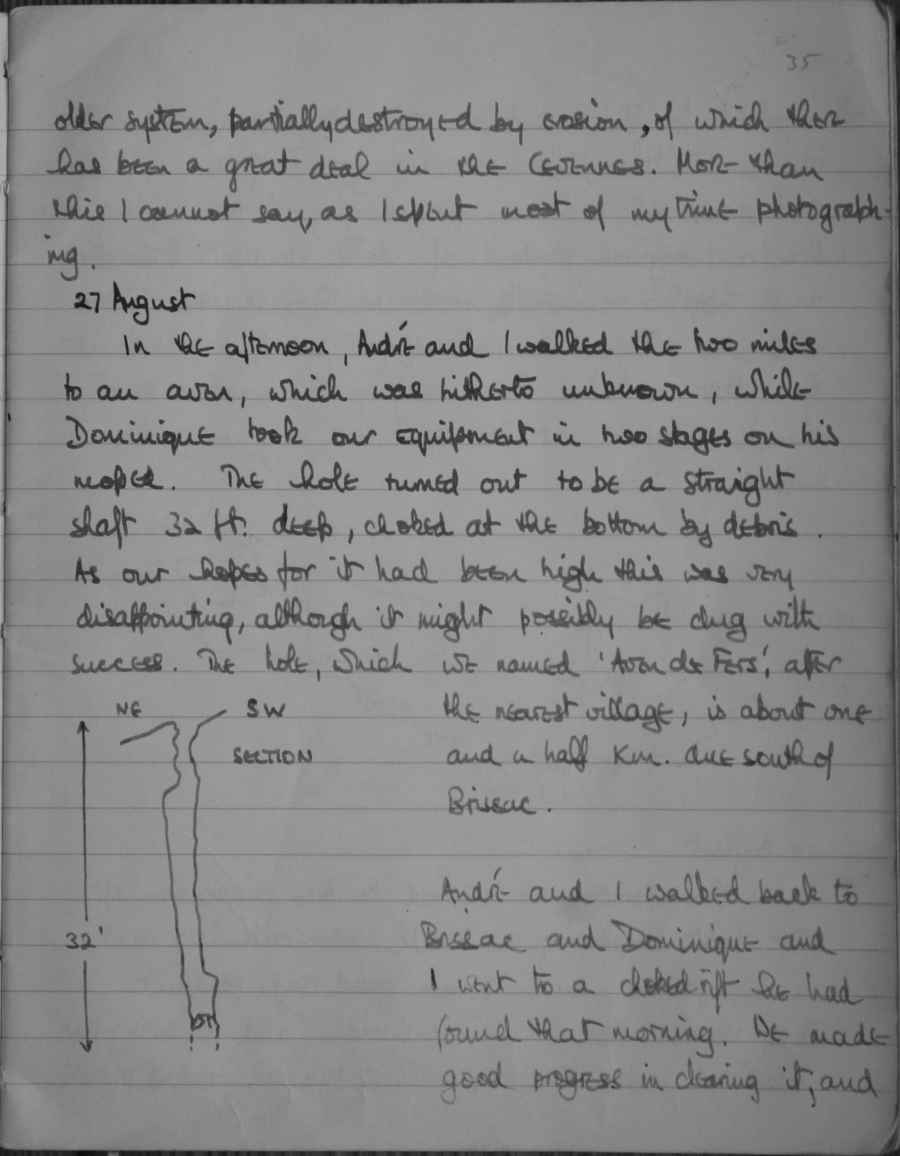 35
older system, partially destroyed by erosion, of which there
has been a great deal in the Cevennes. More than
this I cannot say, as I spent most of my time photograph-
ing.
27 August
In the afternoon, André and I walked the two miles
to an aven, which was hitherto unknown, while
Dominique took our equipment in two stages on his
moped. The hole turned out to be a straight
shaft 32 ft. deep, choked at the bottom by debris.
As our hopes for it had been high this was very
disappointing, although it might possibly be dug with
success. The hole, which we named 'Aven de Fers', after
the nearest village, is about one
and a half Km. due south of
Brissac.
NE SW
SECTION
32'
André and I walked back to
Brissac and Dominique and
I went to a choked rift he had
found that morning. We made
good progress in clearing it, and